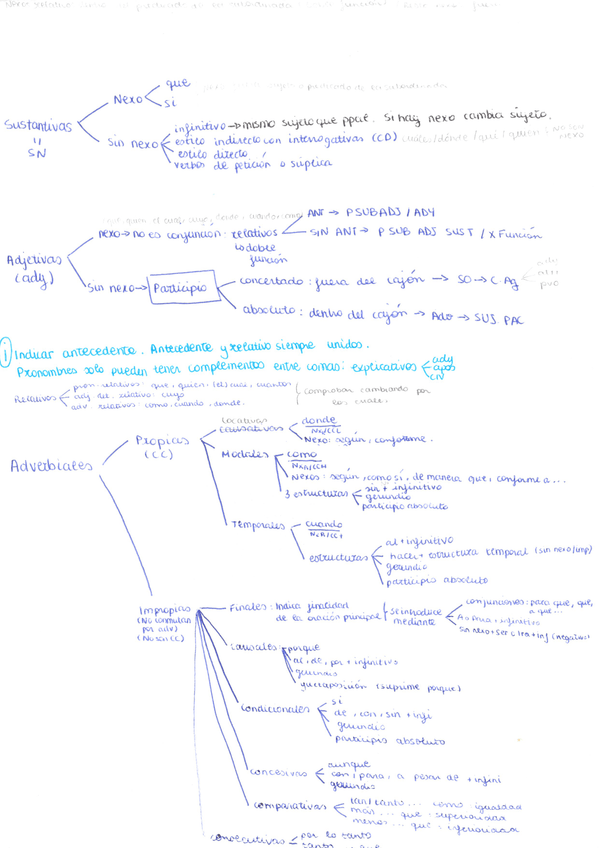 que
Nexo
si
Sustantivas
=
SN
infinitivo → mismo sujeto que ppal. Si hay nexo cambia sujeto.
Sin nexo
estilo indirecto con interrogativas (CD)
estilo directo
verbos de petición o súplica
ANT → P SUB ADJ / ADY
nexo → no es conjunción: relativos
SIN ANT → P SUB ADJ SUST / X Función
↳ doble
función
Adjetivas
(ady)
Sin nexo → Participio
concertado: fuera del cajón → SO → C. Ag
absoluto: dentro del cajón → Ado → SUJ. PAC
Indicar antecedente. Antecedente y relativo siempre unidos.
Pronombres solo pueden tener complementos entre comas: explicativos
ady
apos
CN
Relativos
pron. relativos: que, quien, (el) cual, cuantos
adj. det. relativo: cuyo
adv. relativos: como, cuando, donde.
comprobar cambiando por
los cuales.
Adverbiales
Propias
(CC)
Locativas
donde
NX/CCL
Nexo: según, conforme.
Modales
como
NX/CCM
Nexos: según, como si, de manera que, conforme a...
3 estructuras
sin + infinitivo
gerundio
participio absoluto
Temporales
cuando
NX/CCT
estructuras
al + infinitivo
hacer + estructura temporal (sin nexo/imp)
gerundio
participio absoluto
Impropias
(No conmutan
por adv)
(No son CC)
Finales: Indica finalidad
de la oración principal
se introduce
mediante
conjunciones: para que, que,
a que...
A o Para + infinitivo
Sin nexo + ser o ir a + inf (negativo)
causales
porque
al, de, por + infinitivo
gerundio
yuxtaposición (suprime porque)
condicionales
si
de, con, sin + infi
gerundio
participio absoluto
concesivas
aunque
con, para, a pesar de + infini
gerundio
comparativas
tan/tanto... como: igualdad
más... que: superioridad
menos... que: inferioridad
consecutivas
por lo tanto